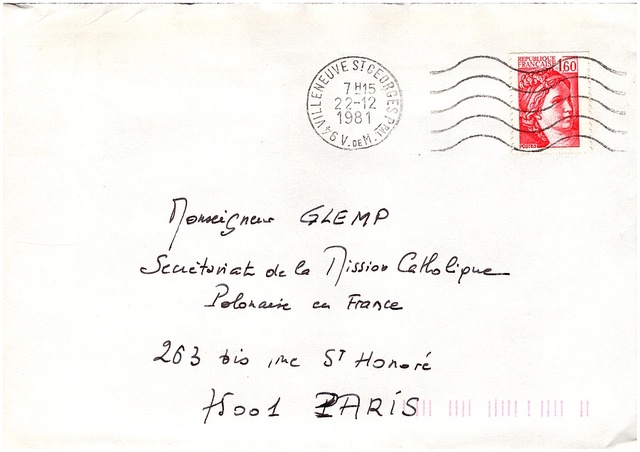 VILLENEUVE ST GEORGES PPAL
7H15
22-12
1981
94 V. DE M.
REPUBLIQUE
FRANÇAISE
1,60
POSTES
Monseigneur GLEMP
Secrétariat de la Mission Catholique
Polonaise en France
263 bis rue ST Honoré
75001 PARIS